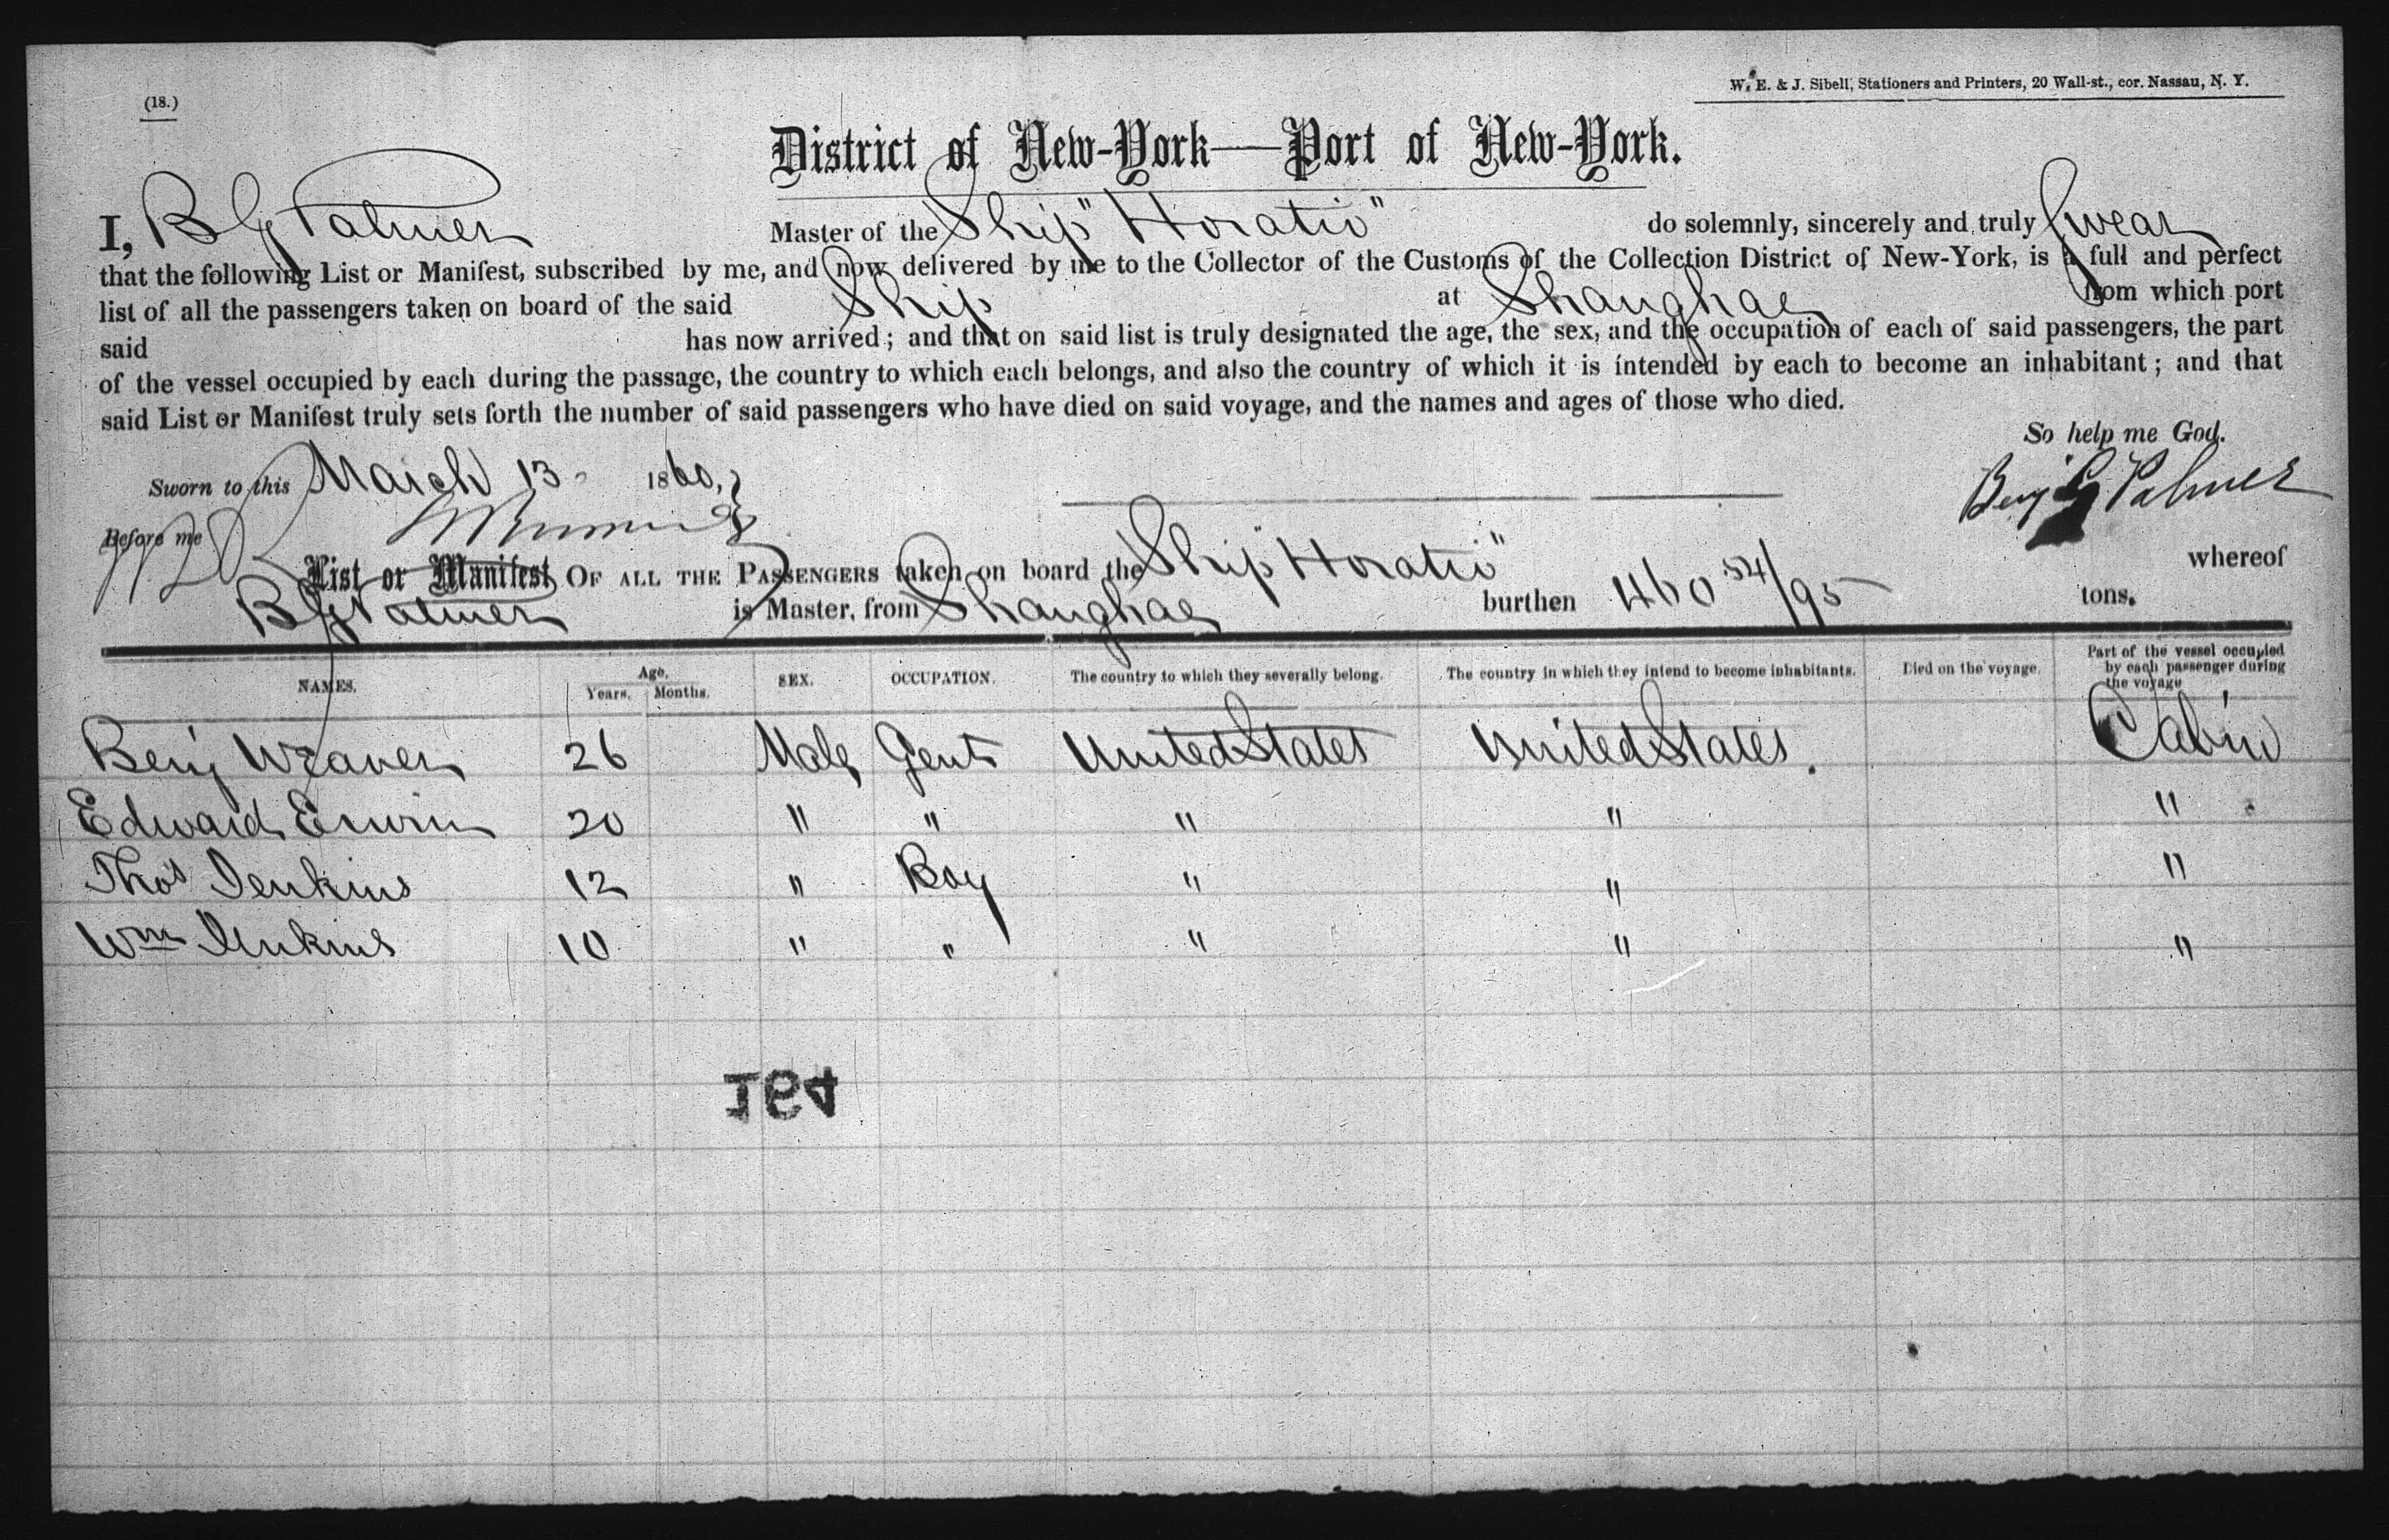 (18.)
W. E. & J. Sibell, Stationers and Printers, 20 Wall-st., cor. Nassau, N. Y.
District of New-York—Port of New-York.
I, B G Palmer Master of the Ship "Horatio" do solemnly, sincerely and truly Swear
that the following List or Manifest, subscribed by me, and now delivered by me to the Collector of the Customs of the Collection District of New-York, is a full and perfect
list of all the passengers taken on board of the said Ship at Shanghae from which port
said has now arrived; and that on said list is truly designated the age, the sex, and the occupation of each of said passengers, the part
of the vessel occupied by each during the passage, the country to which each belongs, and also the country of which it is intended by each to become an inhabitant; and that
said List or Manifest truly sets forth the number of said passengers who have died on said voyage, and the names and ages of those who died.
So help me God.
Sworn to this March 13 1860,
Benj G Palmer
Before me
List or Manifest OF ALL THE PASSENGERS taken on board the Ship "Horatio" whereof
B G Palmer is Master, from Shanghae burthen 460 54/95 tons.
NAMES. Age. Years. Months. SEX. OCCUPATION. The country to which they severally belong. The country in which they intend to become inhabitants. Died on the voyage. Part of the vessel occupied by each passenger during the voyage
Benj Weaver 26 Male Gent United States United States. Cabin
Edward Erwin 20 " " " " "
Thos Jenkins 12 " Boy " " "
Wm Jenkins 10 " " " " "